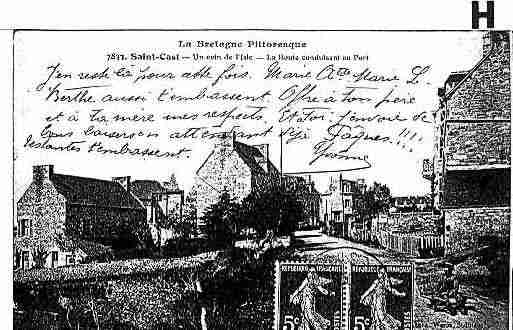 H
La Bretagne Pittoresque
7821. Saint-Cast — Un coin de l'Isle — La Route conduisant au Port
J'en reste là pour cette fois. Marie A Marie L.
Berthe aussi t'embrassent. Offre à ton père
et à ta mère mes respects. Et toi j'envoie de
bons baisers en attendant Jacques!!!
t'embrassent.
Yvonne
REPUBLIQUE FRANÇAISE REPUBLIQUE FRANÇAISE
5c 5c